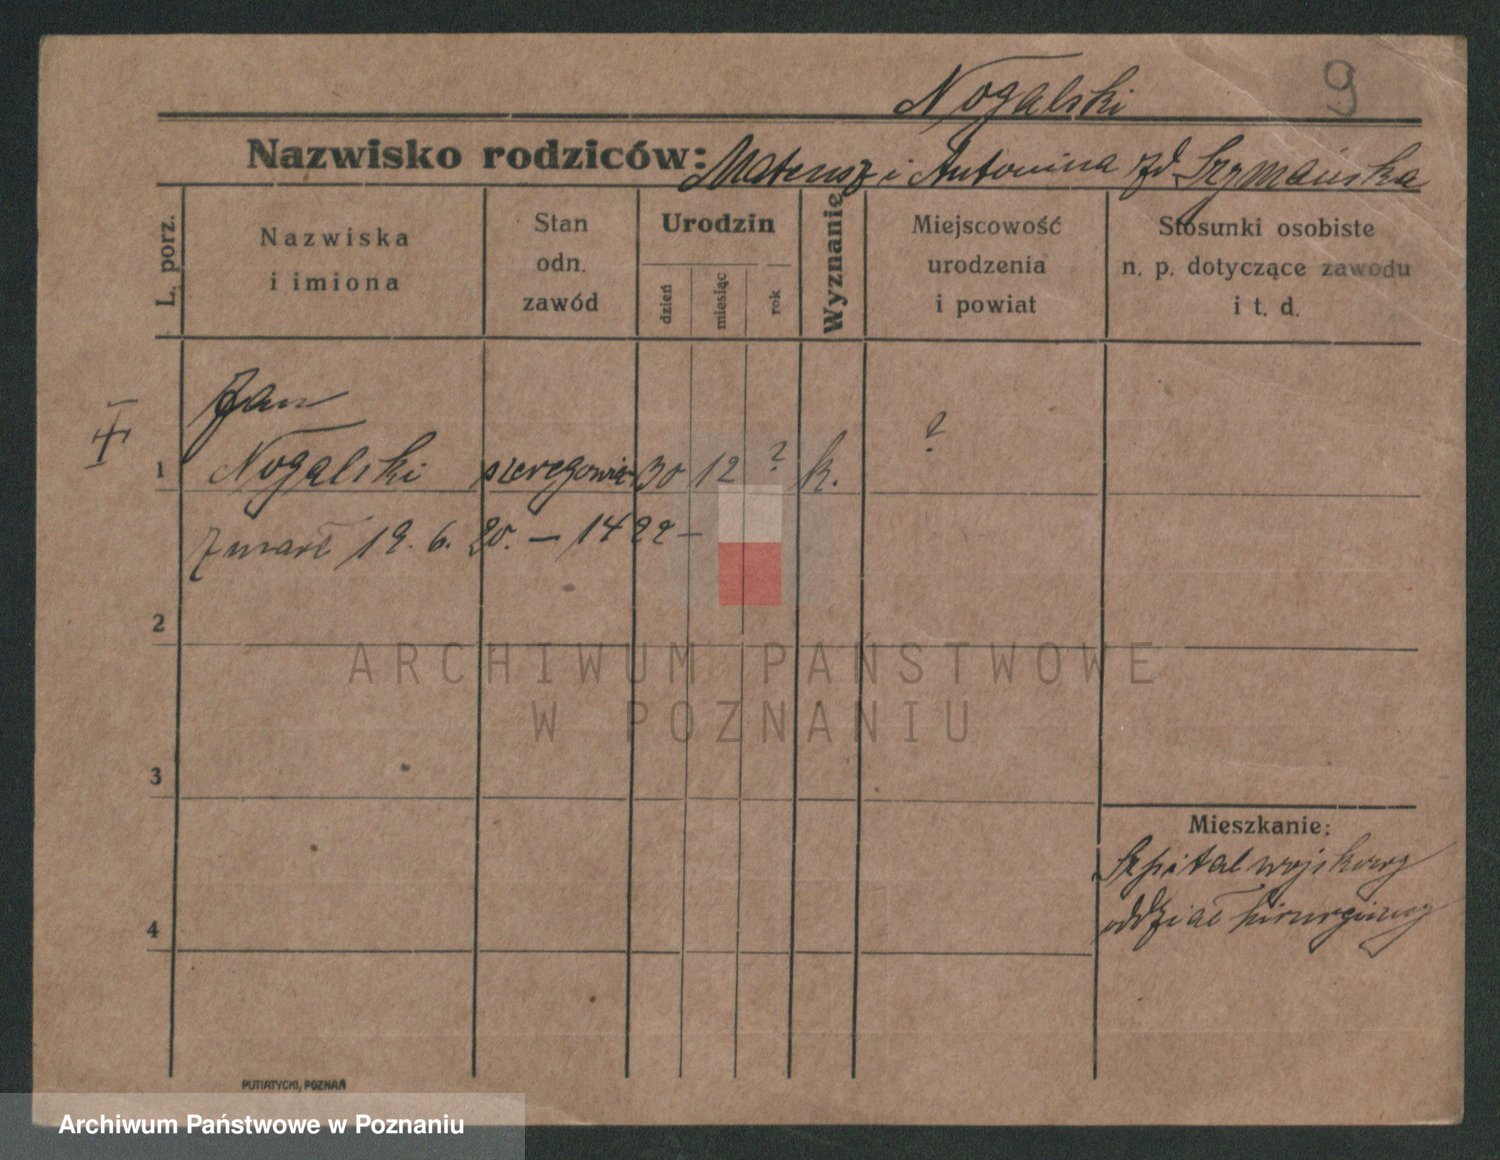 Nogalski
9
Nazwisko rodziców: Mateusz i Antonina zd Szymańska
L. porz.
Nazwiska
i imiona
Stan
odn.
zawód
Urodzin
dzień
miesiąc
rok
Wyznanie
Miejscowość
urodzenia
i powiat
Stosunki osobiste
n. p. dotyczące zawodu
i t. d.
1
Jan
Nogalski
szeregowiec
30
12
?
k.
?
zmarł 19. 6. 20. – 1422 –
2
3
4
Mieszkanie:
Szpital wojskowy
oddział hirurgiczny
PUTIATYCKI, POZNAŃ
ARCHIWUM PAŃSTWOWE
W POZNANIU
Archiwum Państwowe w Poznaniu